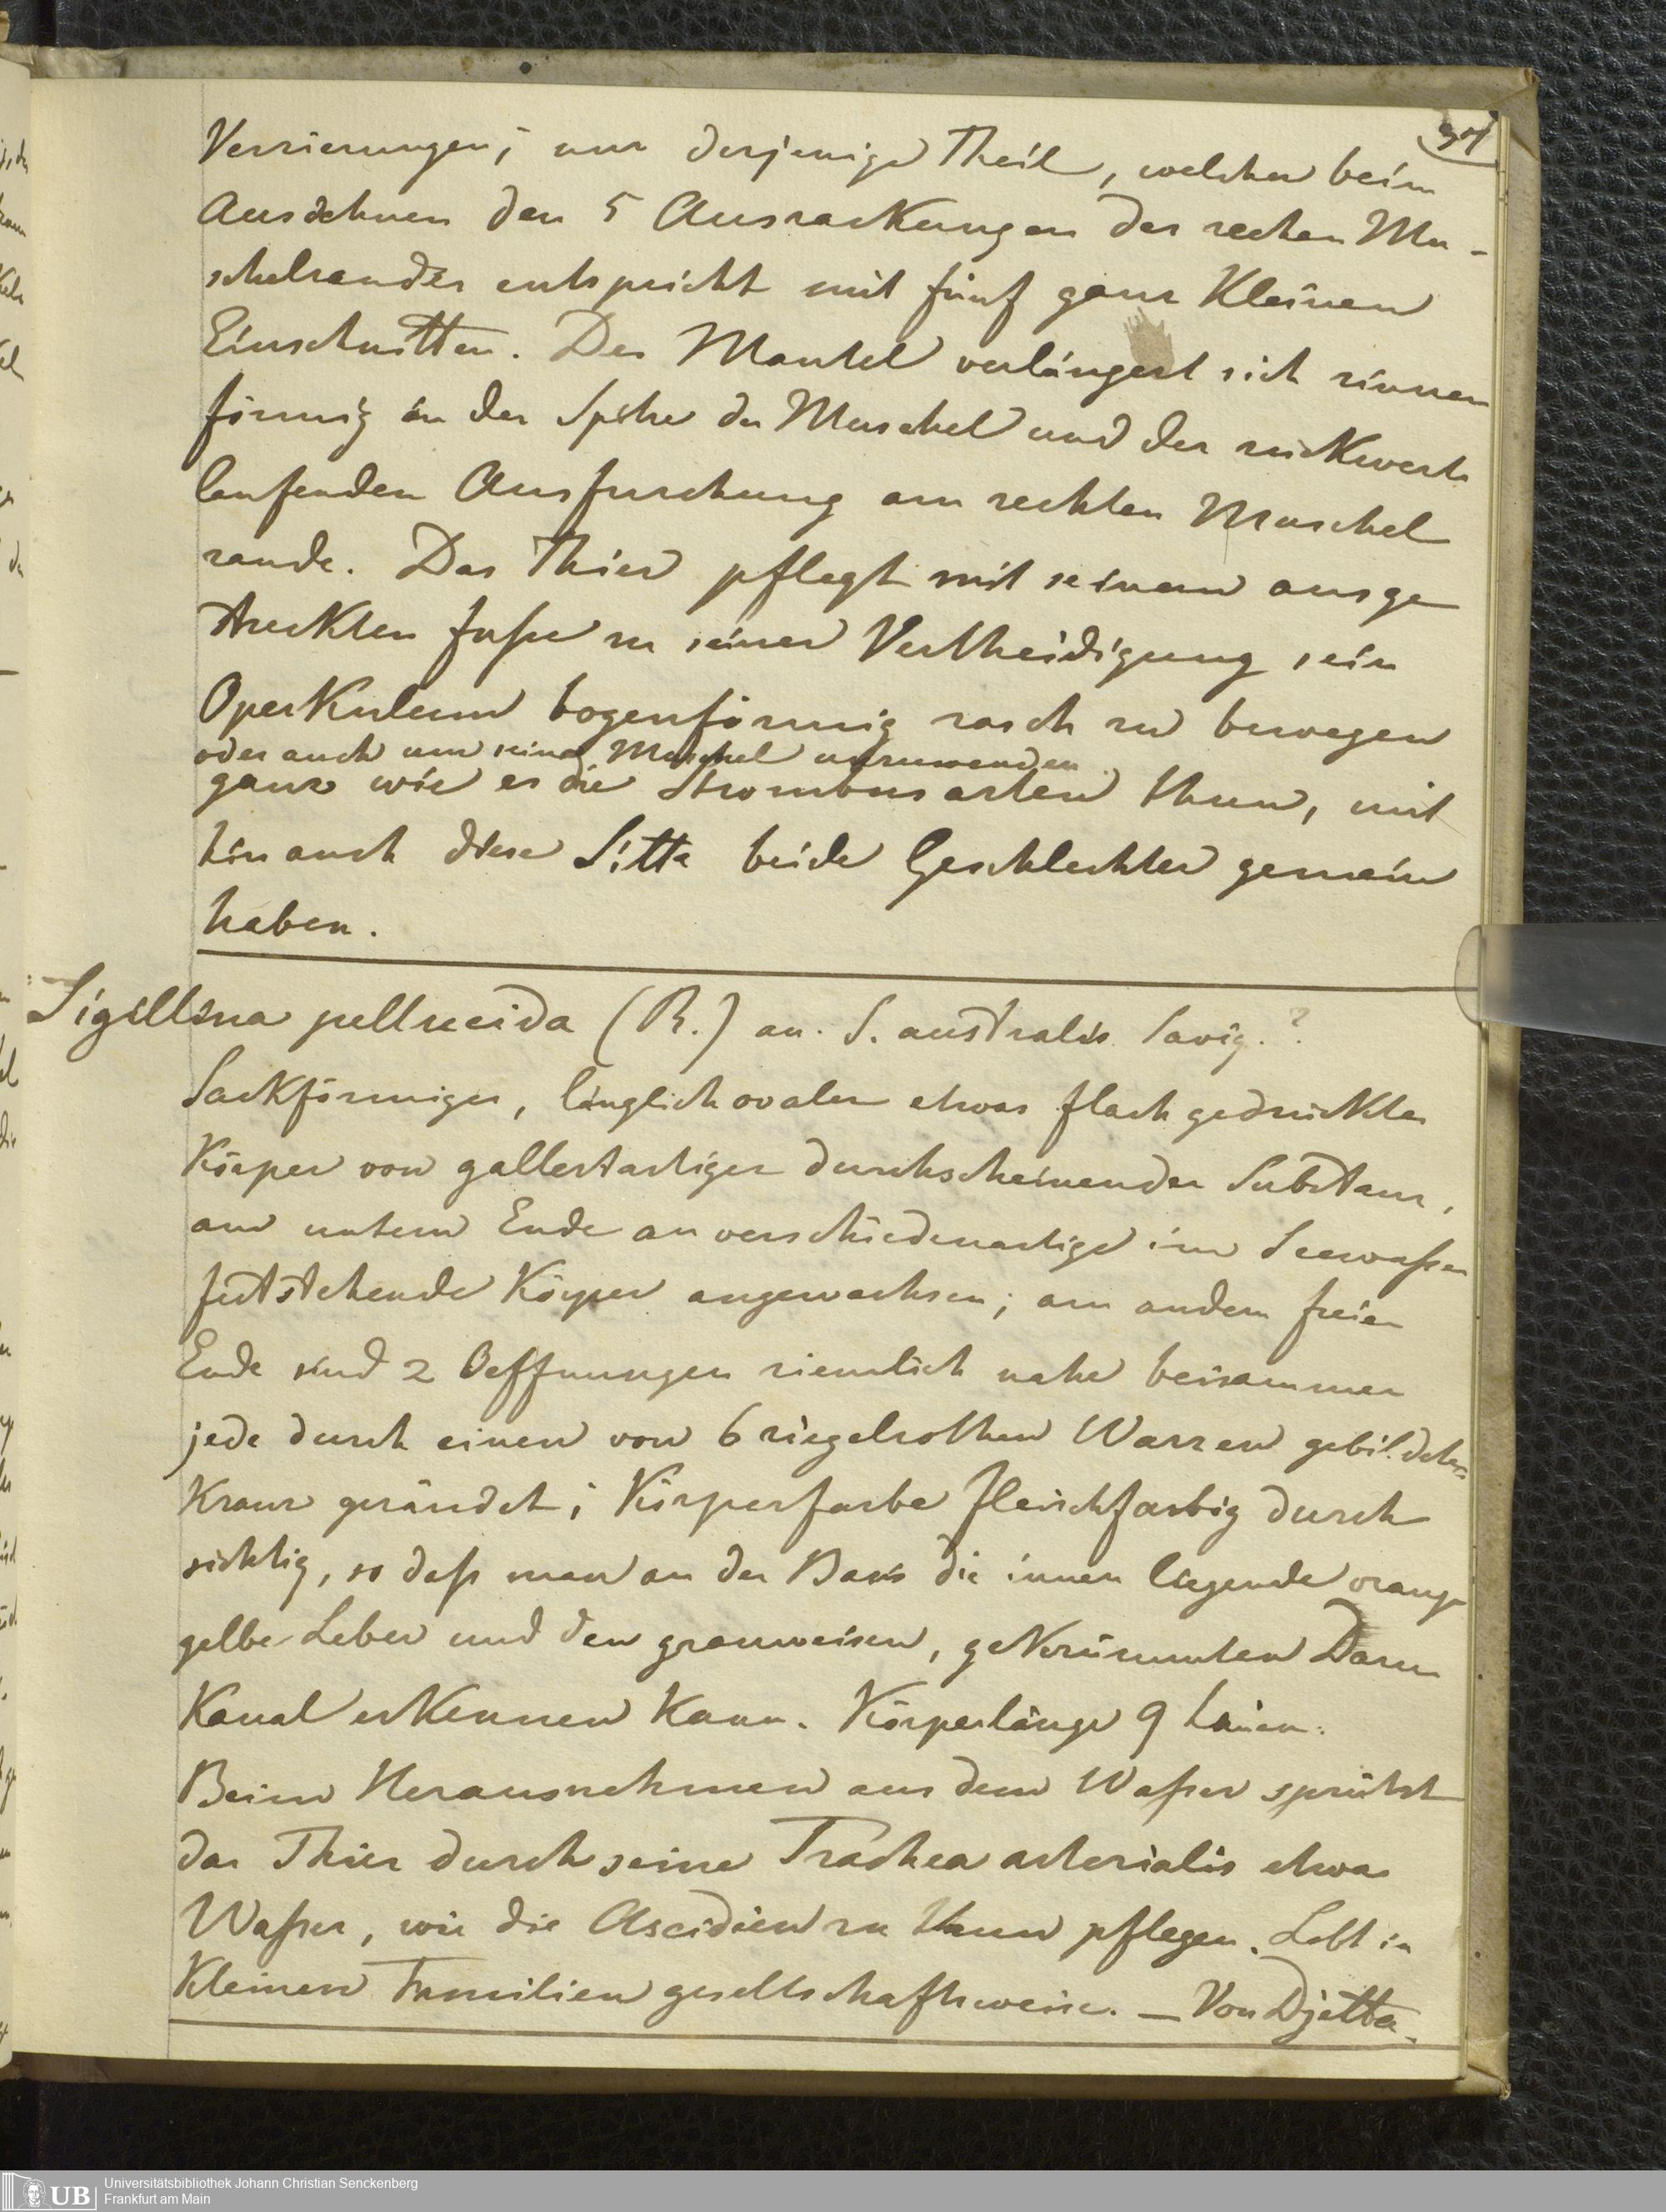 Verzierungen; nur derjenige Theil, welcher beim
Ausdehnen den 5 Auszackungen des rechten Mu-
schelrandes entspricht mit fünf ganz kleinen
Einschnitten. Der Mantel verlängert sich rinnen
förmig in der Spitze der Muschel und der rückwerts
laufenden Ausfurchung am rechten Muschel
rande. Das Thier pflegt mit seinem ausge
streckten Fuße zu seiner Vertheidigung sein
Operkulum bogenförmig rasch zu bewegen
oder auch um seine Muschel umzuwenden
ganz wie es die Strombusarten thun, mit
hin auch diese Sitte beide Geschlechter gemein
haben.
Sigillina pellucida (R.) an. S. australis Savig.?
Sackförmiger, länglich ovaler etwas flach gedrückter
Körper von gallertartiger durchscheinender Substanz,
am untern Ende an verschiedenartige im Seewaßer
feststehende Körper angewachsen; am andern freien
Ende sind 2 Oeffnungen ziemlich nahe beisammen
jede durch einen von 6 ziegelrothen Warzen gebildeten
Kranz gerändet; Körperfarbe fleischfarbig durch
sichtig, so daß man an der Basis die innen liegende orange
gelbe Leber und den grauweisen, gekrümmten Darm
Kanal erkennen kann. Körperlänge 9 Linien.
Beim Herausnehmen aus dem Waßer sprützt
das Thier durch seine Trachea arterialis etwas
Waßer, wie die Ascidien zu thun pflegen. Lebt in
kleinen Familien gesellschaftsweise. — Von Djetta.
Universitätsbibliothek Johann Christian Senckenberg
UB Frankfurt am Main